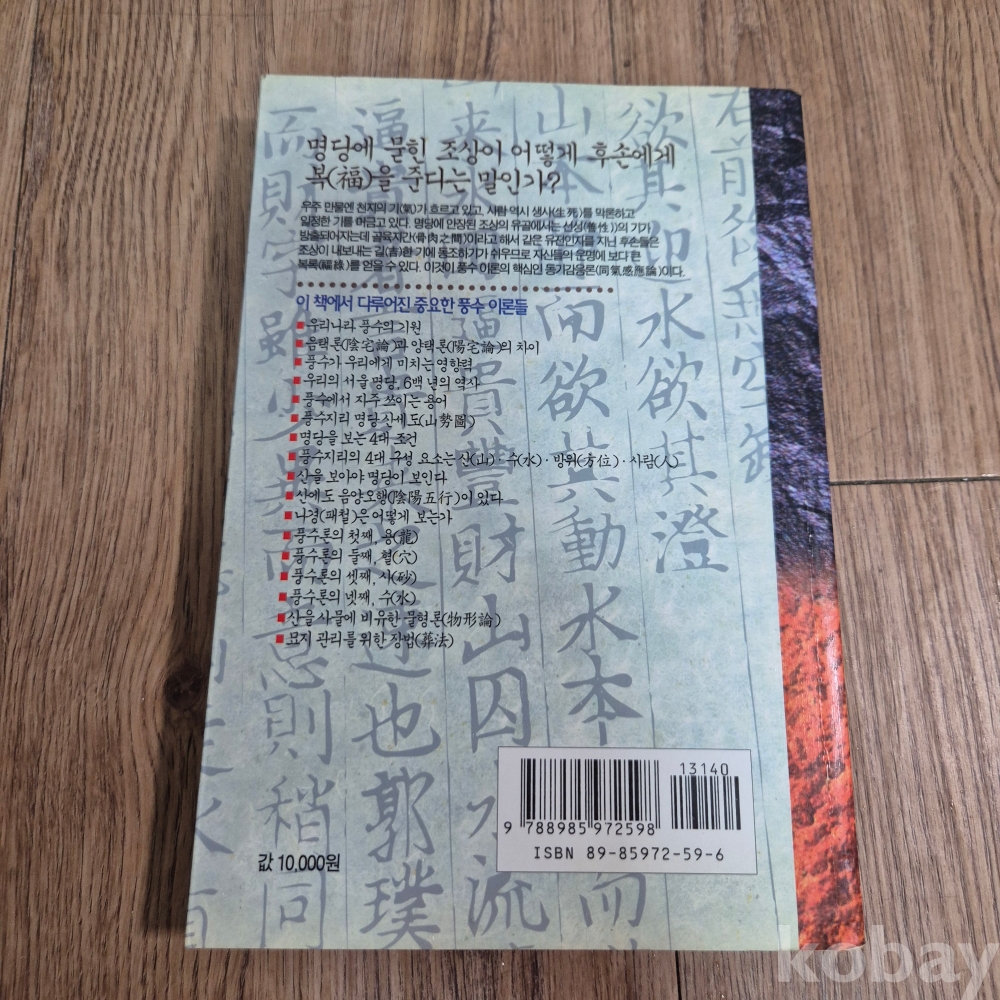 명당에 묻힌 조상이 어떻게 후손에게
복(福)을 준다는 말인가?
우주 만물엔 천지의 기(氣)가 흐르고 있고, 사람 역시 생사(生死)를 막론하고
일정한 기를 머금고 있다. 명당에 안장된 조상의 유골에서는 선성(善性))의 기가
방출되어지는데 골육지간(骨肉之間)이라고 해서 같은 유전인자를 지닌 후손들은
조상이 내보내는 길(吉)한 기에 동조하기가 쉬우므로 자신들의 운명에 보다 큰
복록(福祿)를 얻을 수 있다. 이것이 풍수 이론의 핵심인 동기감응론(同氣感應論)이다.
이 책에서 다루어진 중요한 풍수 이론들
우리나라 풍수의 기원
음택론(陰宅論)과 양택론(陽宅論)의 차이
풍수가 우리에게 미치는 영향력
우리의 서울 명당, 6백 년의 역사
풍수에서 자주 쓰이는 용어
풍수지리 명당 산세도(山勢圖)
명당을 보는 4대 조건
풍수지리의 4대 구성 요소는 산(山)·수(水)·방위(方位)·사람(人)
산을 보아야 명당이 보인다
산에도 음양오행(陰陽五行)이 있다
나경(패철)은 어떻게 보는가
풍수론의 첫째, 용(龍)
풍수론의 둘째, 혈(穴)
풍수론의 셋째, 사(砂)
풍수론의 넷째, 수(水)
산을 사물에 비유한 물형론(物形論)
묘지 관리를 위한 장법(葬法)
값 10,000원
13140
9 788985 972598
ISBN 89-85972-59-6
欲其迎水欲其澄
山本
同欲其動水本
貴豐財山囚
水流
也郭璞
則稍同
kobay